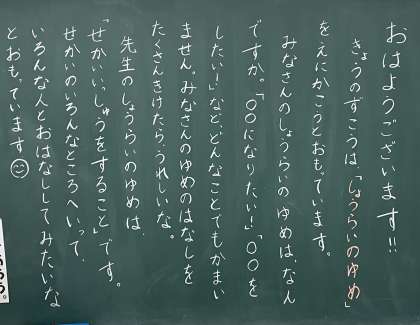 おはようございます!!
きょうのずこうは「しょうらいのゆめ」
をえにかこうとおもっています。
みなさんのしょうらいのゆめは、なん
ですか。「〇〇になりたい!」「〇〇を
したい!」など、どんなことでもかまい
ません。みなさんのゆめのはなしを
たくさんきけたら、うれしいな。
先生のしょうらいのゆめは、
「せかいいっしゅうをすること」です。
せかいのいろんなところへいって
いろんな人とおはなししてみたいな
とおもっています☺